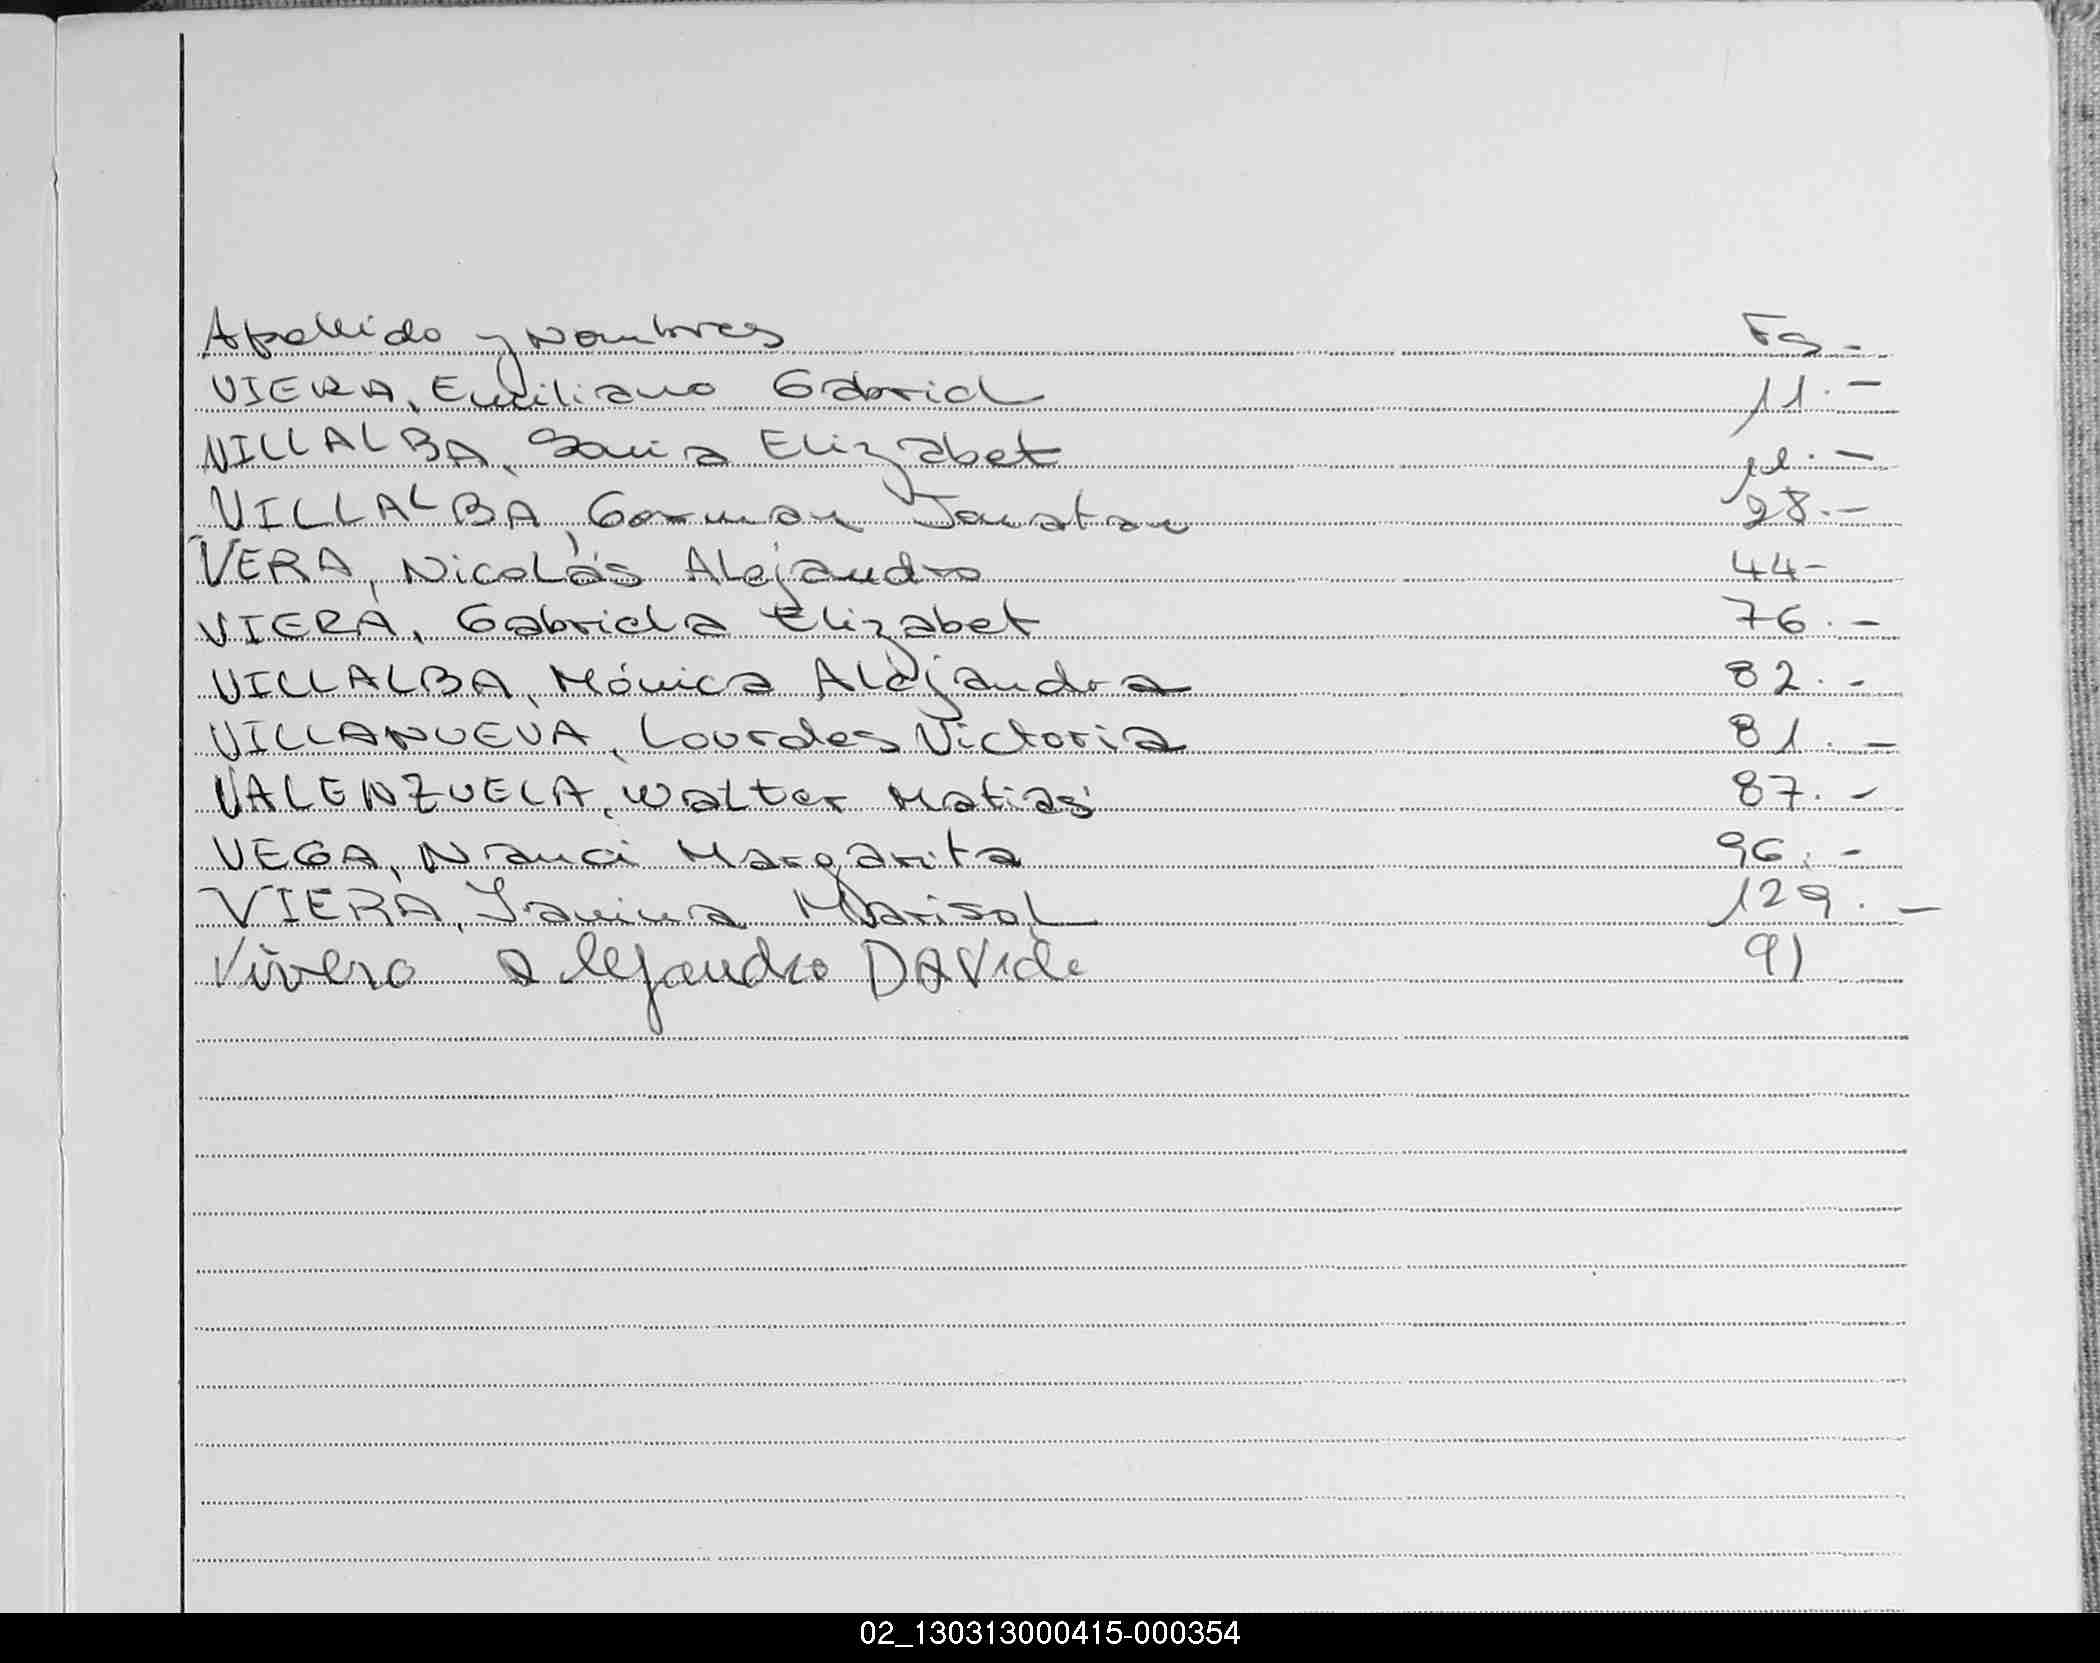 Apellido y Nombres Fs -
VIERA, Emiliano Gabriel 11.-
VILLALBA, Sonia Elizabet .-
VILLALBA, German Jonatan 28.-
VERA, Nicolás Alejandro 44-
VIERA, Gabriela Elizabet 76.-
VILLALBA, Mónica Alejandra 82.-
VILLANUEVA, Lourdes Victoria 81.-
VALENZUELA, Walter Matias 87.-
VEGA, Nanci Margarita 96.-
VIERA, Yanina Marisol 129.-
Vivero alejandro DAVid 91
02_130313000415-000354